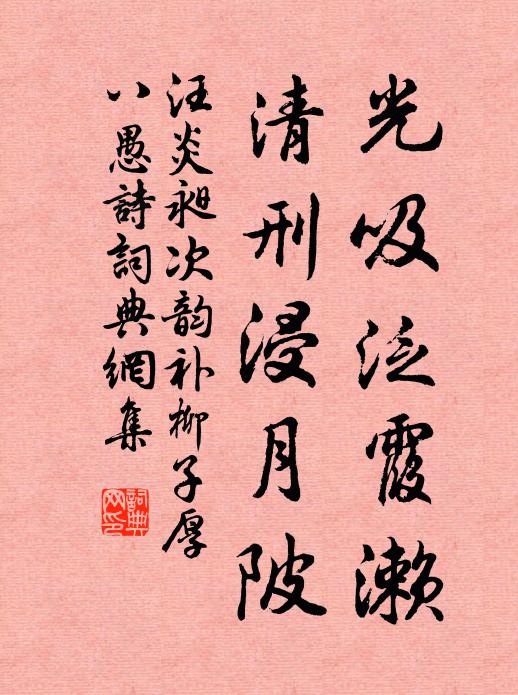 光吸泛霞濑
清刑浸月陂
汪炎昶次韵补柳子厚
八愚詩詞典網集
詞典網印